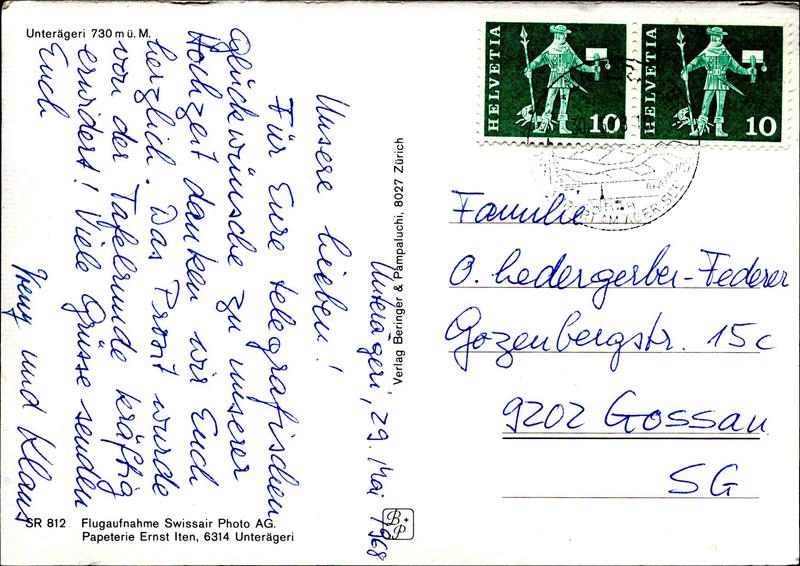 Unterägeri 730 m ü. M.
Unterägeri, 29. Mai 1968
Unsere lieben!
Für Eure telegrafischen
Glückwünsche zu unserer
Hochzeit danken wir Euch
herzlich. Das Prosit wurde
von der Tafelrunde kräftig
erwidert! Viele Grüsse senden
Euch
und Klaus
SR 812 Flugaufnahme Swissair Photo AG.
Papeterie Ernst Iten, 6314 Unterägeri
Verlag Beringer & Pampaluchi, 8027 Zürich
B+P
HELVETIA 10
HELVETIA 10
Familie
O. Ledergerber-Federer
Gozenbergstr. 15c
9202 Gossau
SG